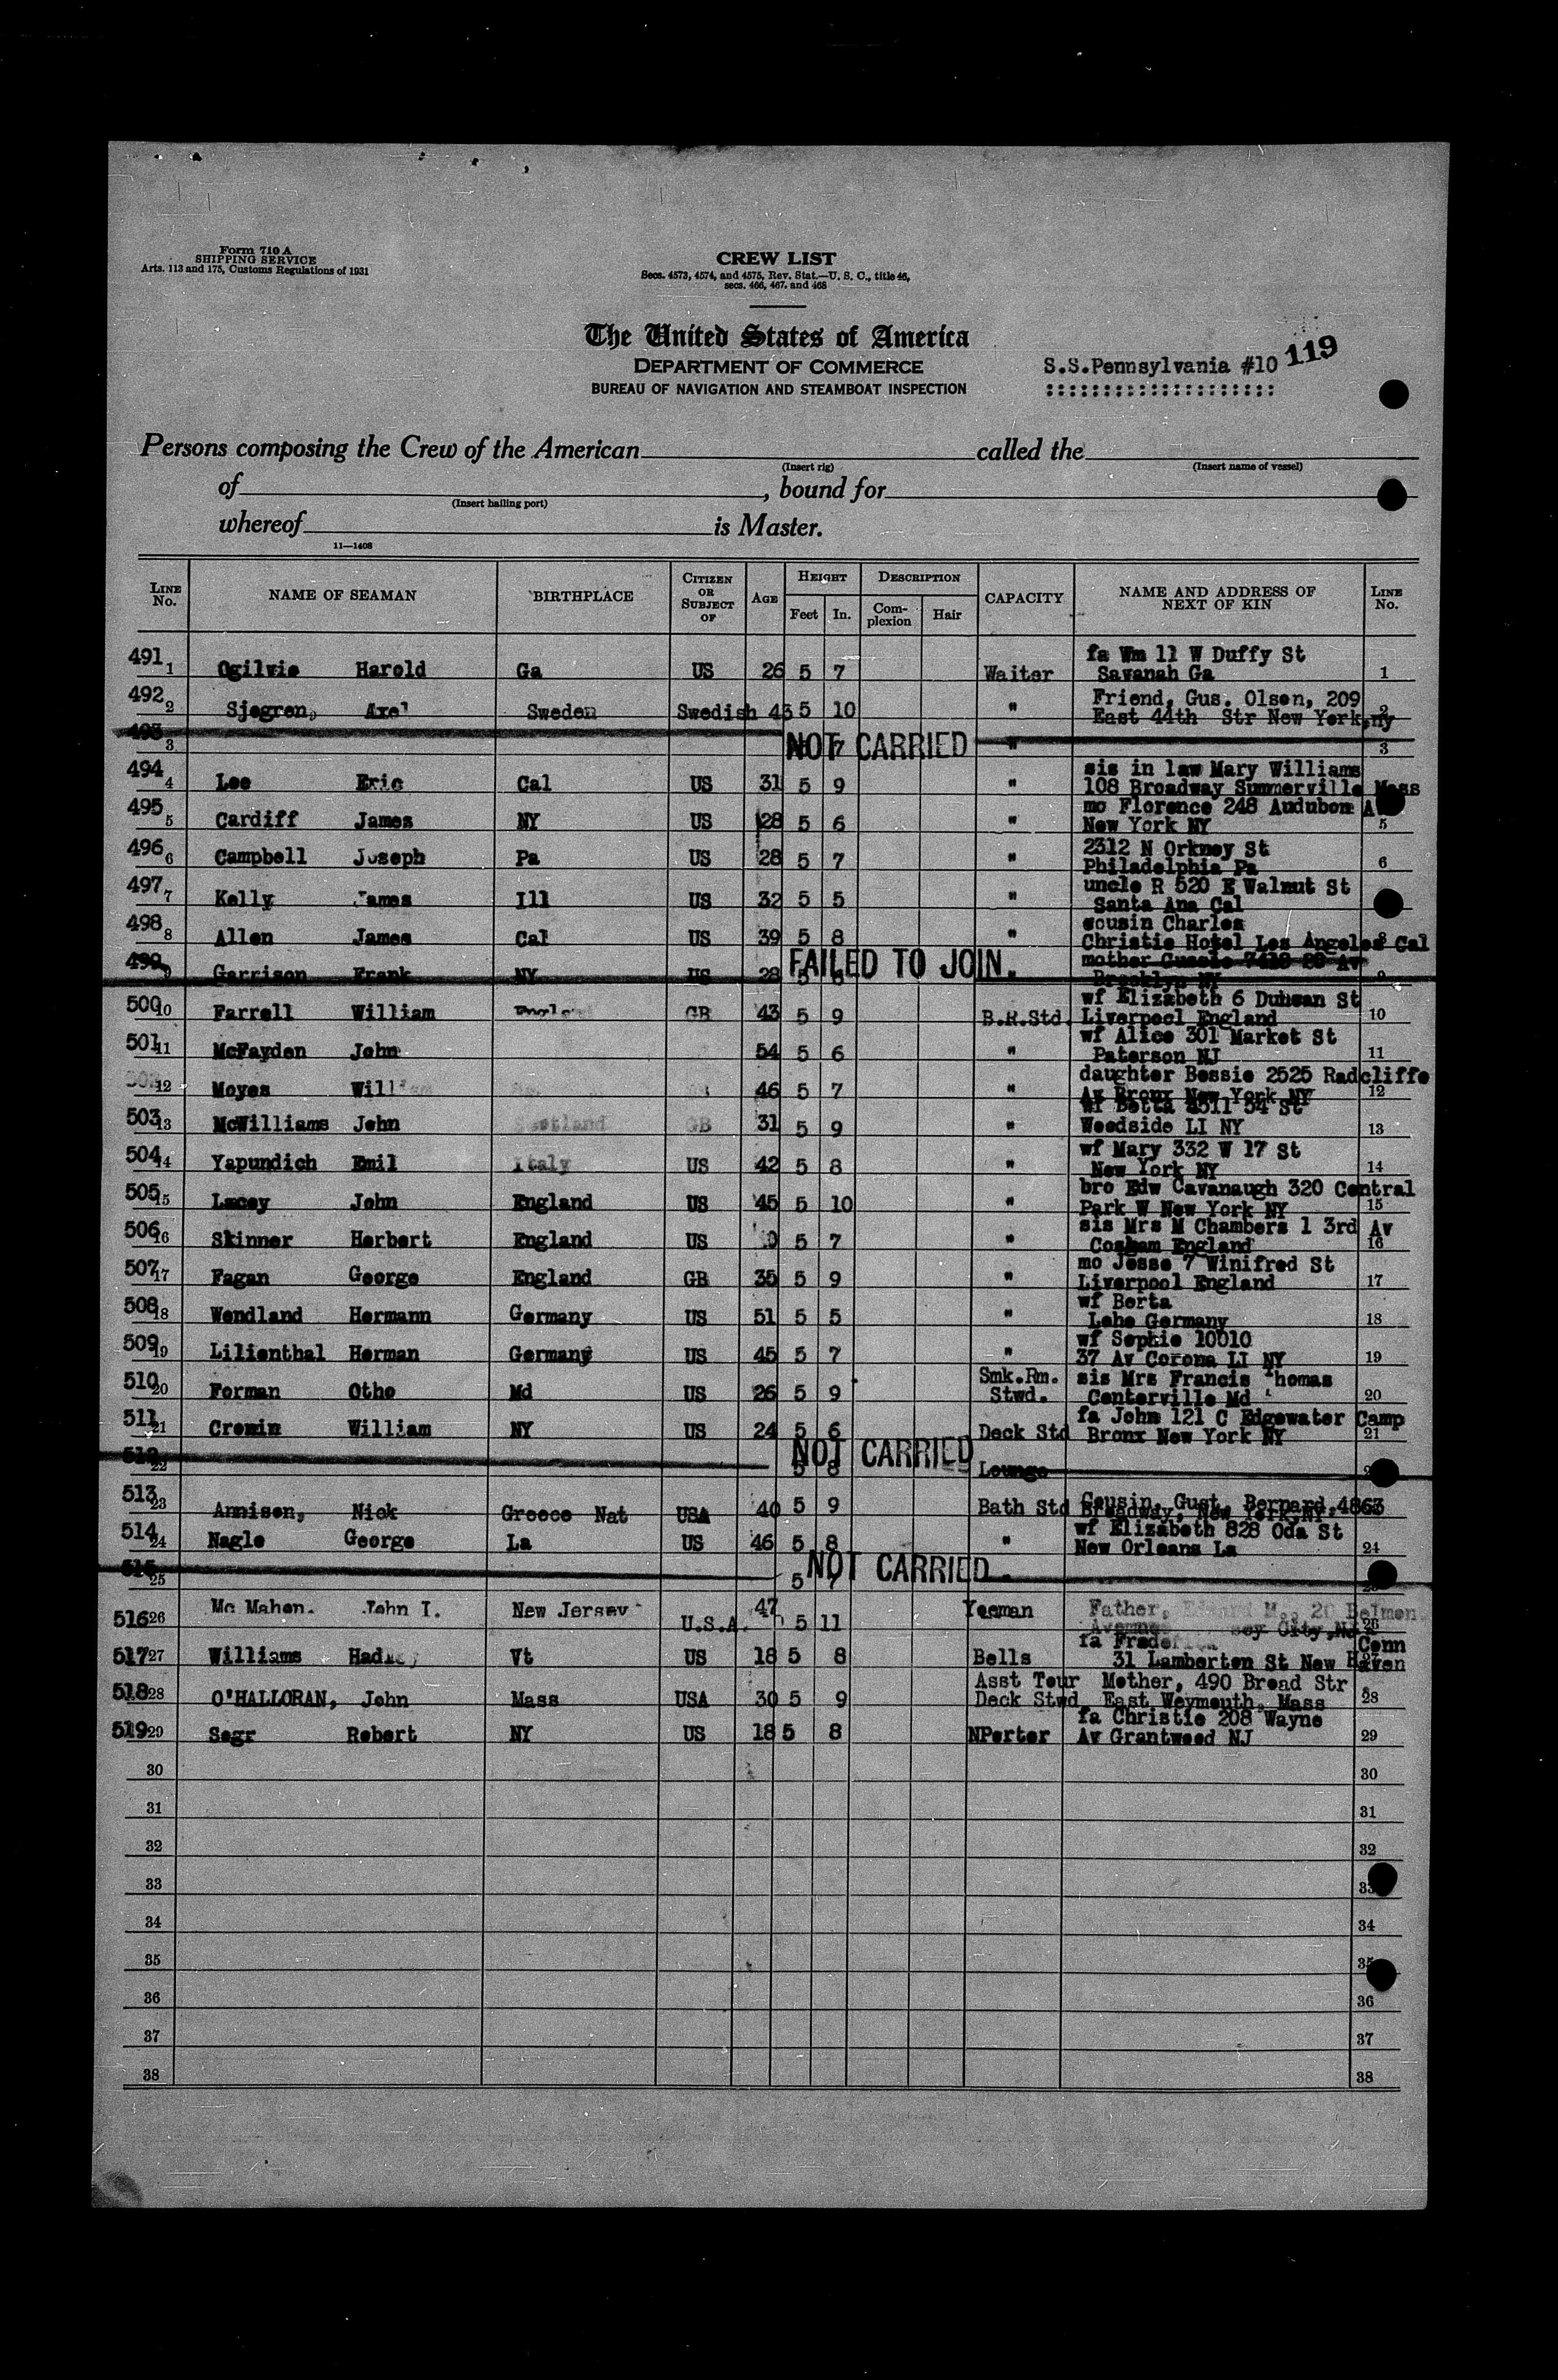 Form 710 A
SHIPPING SERVICE
Arts. 113 and 175, Customs Regulations of 1931
CREW LIST
Secs. 4573, 4574, and 4575, Rev. Stat.—U. S. C., title 46,
secs. 466, 467, and 468
The United States of America
DEPARTMENT OF COMMERCE
BUREAU OF NAVIGATION AND STEAMBOAT INSPECTION
S.S.Pennsylvania #10 119
Persons composing the Crew of the American called the
(Insert rig) (Insert name of vessel)
of , bound for
(Insert hailing port)
whereof is Master.
11—1408
LINE No. NAME OF SEAMAN BIRTHPLACE CITIZEN OR SUBJECT OF AGE HEIGHT Feet In. DESCRIPTION Complexion Hair CAPACITY NAME AND ADDRESS OF NEXT OF KIN LINE No.
491 1 Ogilvie Harold Ga US 26 5 7 Waiter fa Wm 11 W Duffy St
Savanah Ga 1
492 2 Sjogren, Axel Sweden Swedish 45 5 10 " Friend, Gus. Olsen, 209
East 44th Str New York,ny 2
493 3 NOT CARRIED 7 " 3
494 4 Lee Eric Cal US 31 5 9 " sis in law Mary Williams
108 Broadway Summerville Mass
495 5 Cardiff James NY US 28 5 6 " mo Florence 248 Audubon
New York NY 5
496 6 Campbell Joseph Pa US 28 5 7 " 2312 N Orkney St
Philadelphia Pa 6
497 7 Kelly James Ill US 32 5 5 " uncle R 520 E Walnut St
Santa Ana Cal
498 8 Allen James Cal US 39 5 8 " cousin Charles
Christie Hotel Los Angeles Cal 8
499 9 Garrison Frank NY US 28 5 FAILED TO JOIN " mother Gussie
Brooklyn NY 9
500 10 Farrell William GB 43 5 9 B.R.Std. wf Elizabeth 6 Duncan St
Liverpool England 10
501 11 McFayden John 54 5 6 " wf Alice 301 Market St
Paterson NJ 11
12 Moyes William 46 5 7 " daughter Bessie 2525 Radcliffe
Av Bronx New York NY 12
503 13 McWilliams John Scotland GB 31 5 9 " wf Betta 54 St
Woodside LI NY 13
504 14 Yapundich Emil Italy US 42 5 8 " wf Mary 332 W 17 St
New York NY 14
505 15 Lacey John England US 45 5 10 " bro Edw Cavanaugh 320 Central
Park W New York NY 15
506 16 Skinner Herbert England US 5 7 " sis Mrs M Chambers 1 3rd Av
Cosham England 16
507 17 Fagan George England GB 35 5 9 " mo Jesse 7 Winifred St
Liverpool England 17
508 18 Wendland Hermann Germany US 51 5 5 " wf Berta
Lehe Germany 18
509 19 Lilienthal Herman Germany US 45 5 7 " wf Sophie 10010
37 Av Corona LI NY 19
510 20 Forman Otho Md US 26 5 9 Smk.Rm. Stwd. sis Mrs Francis Thomas
Centerville Md 20
511 21 Cronin William NY US 24 5 6 Deck Std fa John 121 C Edgewater Camp
Bronx New York NY 21
512 22 NOT CARRIED 5 8 Lounge
513 23 Annison, Nick Greece Nat USA 40 5 9 Bath Std Cousin, Gust. Bernard,4863
Broadway, New York,NY
514 24 Nagle George La US 46 5 8 " wf Elizabeth 828 Oda St
New Orleans La 24
515 25 5 7 NOT CARRIED
516 26 Mc Mahon. John I. New Jersey U.S.A. 47 5 11 Yeoman Father, M., 20 Belmont
City, 26
517 27 Williams Vt US 18 5 8 Bells fa Conn
31 Lamberton St New Haven
518 28 O'HALLORAN, John Mass USA 30 5 9 Asst Tour Deck Stwd Mother, 490 Broad Str
East Weymouth, Mass 28
519 29 Segr Robert NY US 18 5 8 NPorter fa Christie 208 Wayne
Av Grantwood NJ 29
30 30
31 31
32 32
33 33
34 34
35 35
36 36
37 37
38 38